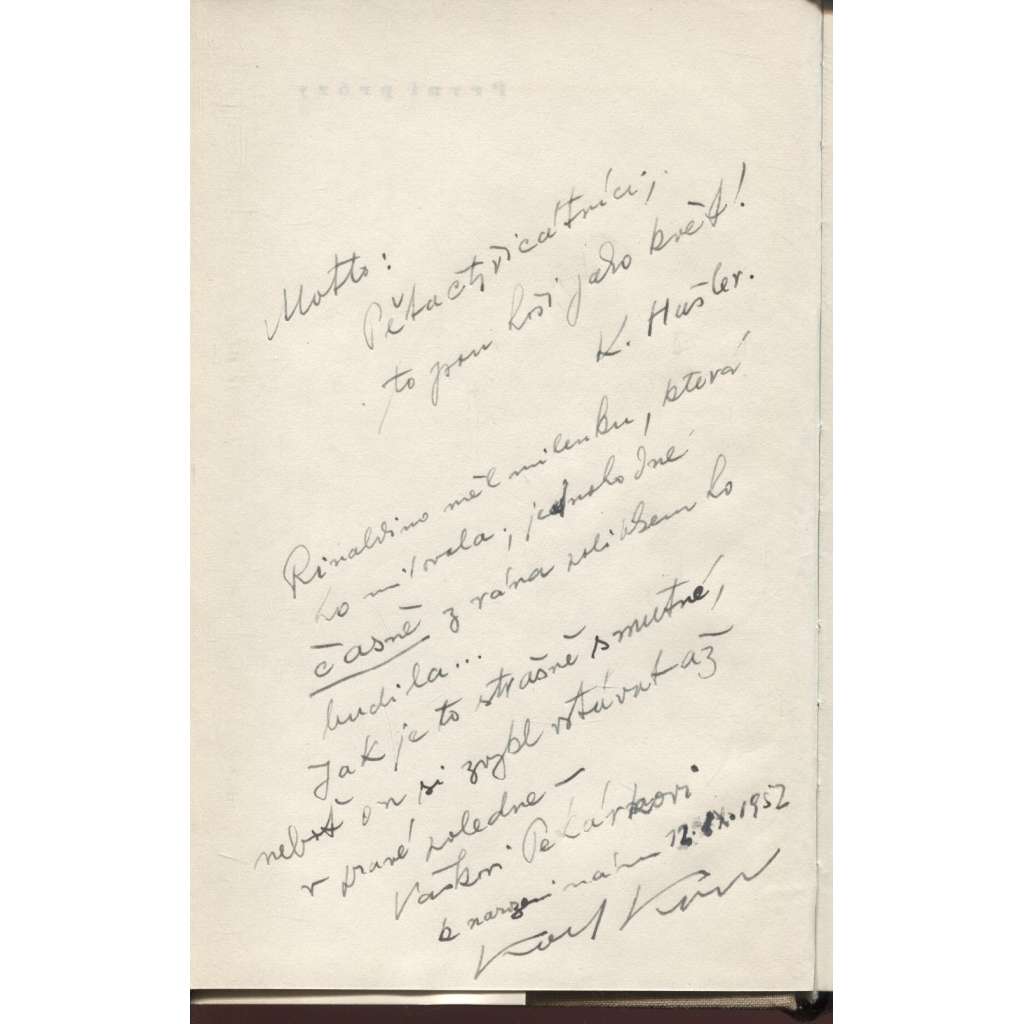 Motto:
Pětačtyřicátníci,
to jsou hoši jako květ!
K. Hašler.
Rinaldino měl milenku, která
ho milovala; jednoho dne
časně z rána polibkem ho
budila...
Jak je to strašně smutné,
neboť on si zvykl vstávat až
v pravé poledne –
Vaškovi Pekárkovi
k narozeninám 12. IX. 1952